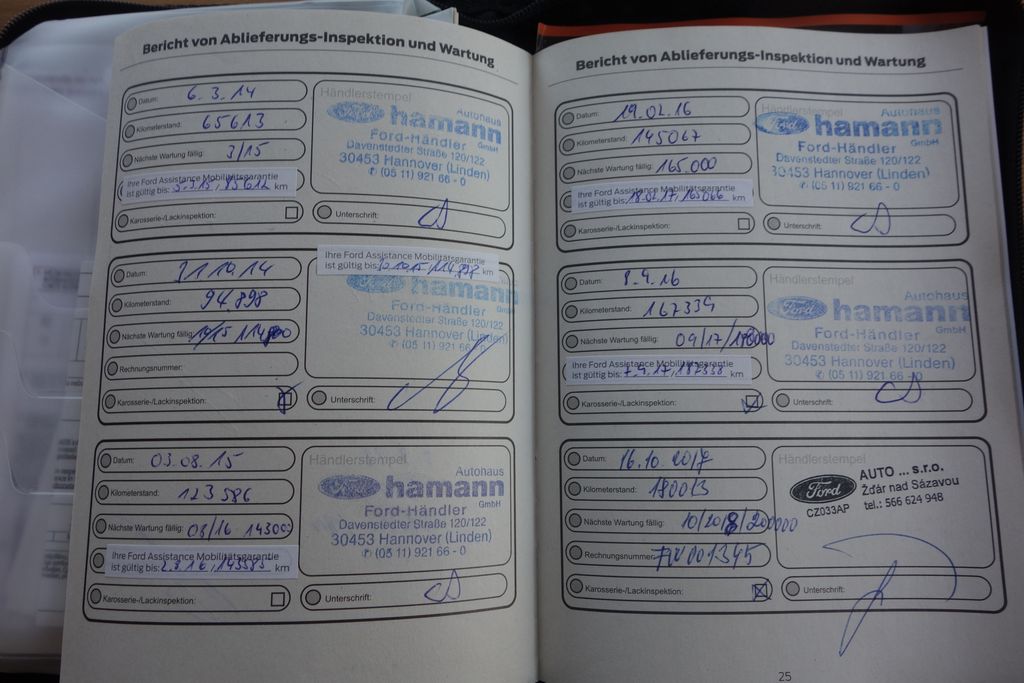 Bericht von Ablieferungs-Inspektion und Wartung
Datum: 6.3.14
Kilometerstand: 65613
Nächste Wartung fällig: 3/15
Ihre Ford Assistance Mobilitätsgarantie
ist gültig bis: 5.3.15, 85612 km
Karosserie-/Lackinspektion:
Händlerstempel
Autohaus
Ford hamann
GmbH
Ford-Händler
Davenstedter Straße 120/122
30453 Hannover (Linden)
✆ (05 11) 921 66 - 0
Unterschrift:
Datum: 31.10.14
Kilometerstand: 94.898
Nächste Wartung fällig:
Rechnungsnummer:
Karosserie-/Lackinspektion:
Ihre Ford Assistance Mobilitätsgarantie
ist gültig bis: km
hamann
GmbH
Ford-Händler
Davenstedter Straße 120/122
30453 Hannover (Linden)
✆ (05 11) 921 66 - 0
Unterschrift:
Datum: 03.08.15
Kilometerstand: 123586
Nächste Wartung fällig: 08/16 143000
Ihre Ford Assistance Mobilitätsgarantie
ist gültig bis: 2.8.16, 143585 km
Karosserie-/Lackinspektion:
Händlerstempel
Autohaus
Ford hamann
GmbH
Ford-Händler
Davenstedter Straße 120/122
30453 Hannover (Linden)
✆ (05 11) 921 66 - 0
Unterschrift:
Bericht von Ablieferungs-Inspektion und Wartung
Datum: 19.02.16
Kilometerstand: 145067
Nächste Wartung fällig: 165.000
Ihre Ford Assistance Mobilitätsgarantie
ist gültig bis: 18.02.17, 165066 km
Karosserie-/Lackinspektion:
Händlerstempel
Autohaus
Ford hamann
GmbH
Ford-Händler
Davenstedter Straße 120/122
30453 Hannover (Linden)
✆ (05 11) 921 66 - 0
Unterschrift:
Datum: 8.9.16
Kilometerstand: 167339
Nächste Wartung fällig: 09/17/
Ihre Ford Assistance Mobilitätsgarantie
ist gültig bis: 7.9.17, 187338 km
Karosserie-/Lackinspektion:
Händlerstempel
Autohaus
Ford hamann
GmbH
Ford-Händler
Davenstedter Straße 120/122
30453 Hannover (Linden)
✆ (05 11) 921 66 - 0
Unterschrift:
Datum: 16.10.2017
Kilometerstand: 180013
Nächste Wartung fällig: 10/2018/200000
Rechnungsnummer:
Karosserie-/Lackinspektion:
Händlerstempel
Ford AUTO ... s.r.o.
Žďár nad Sázavou
CZ033AP tel.: 566 624 948
Unterschrift:
25